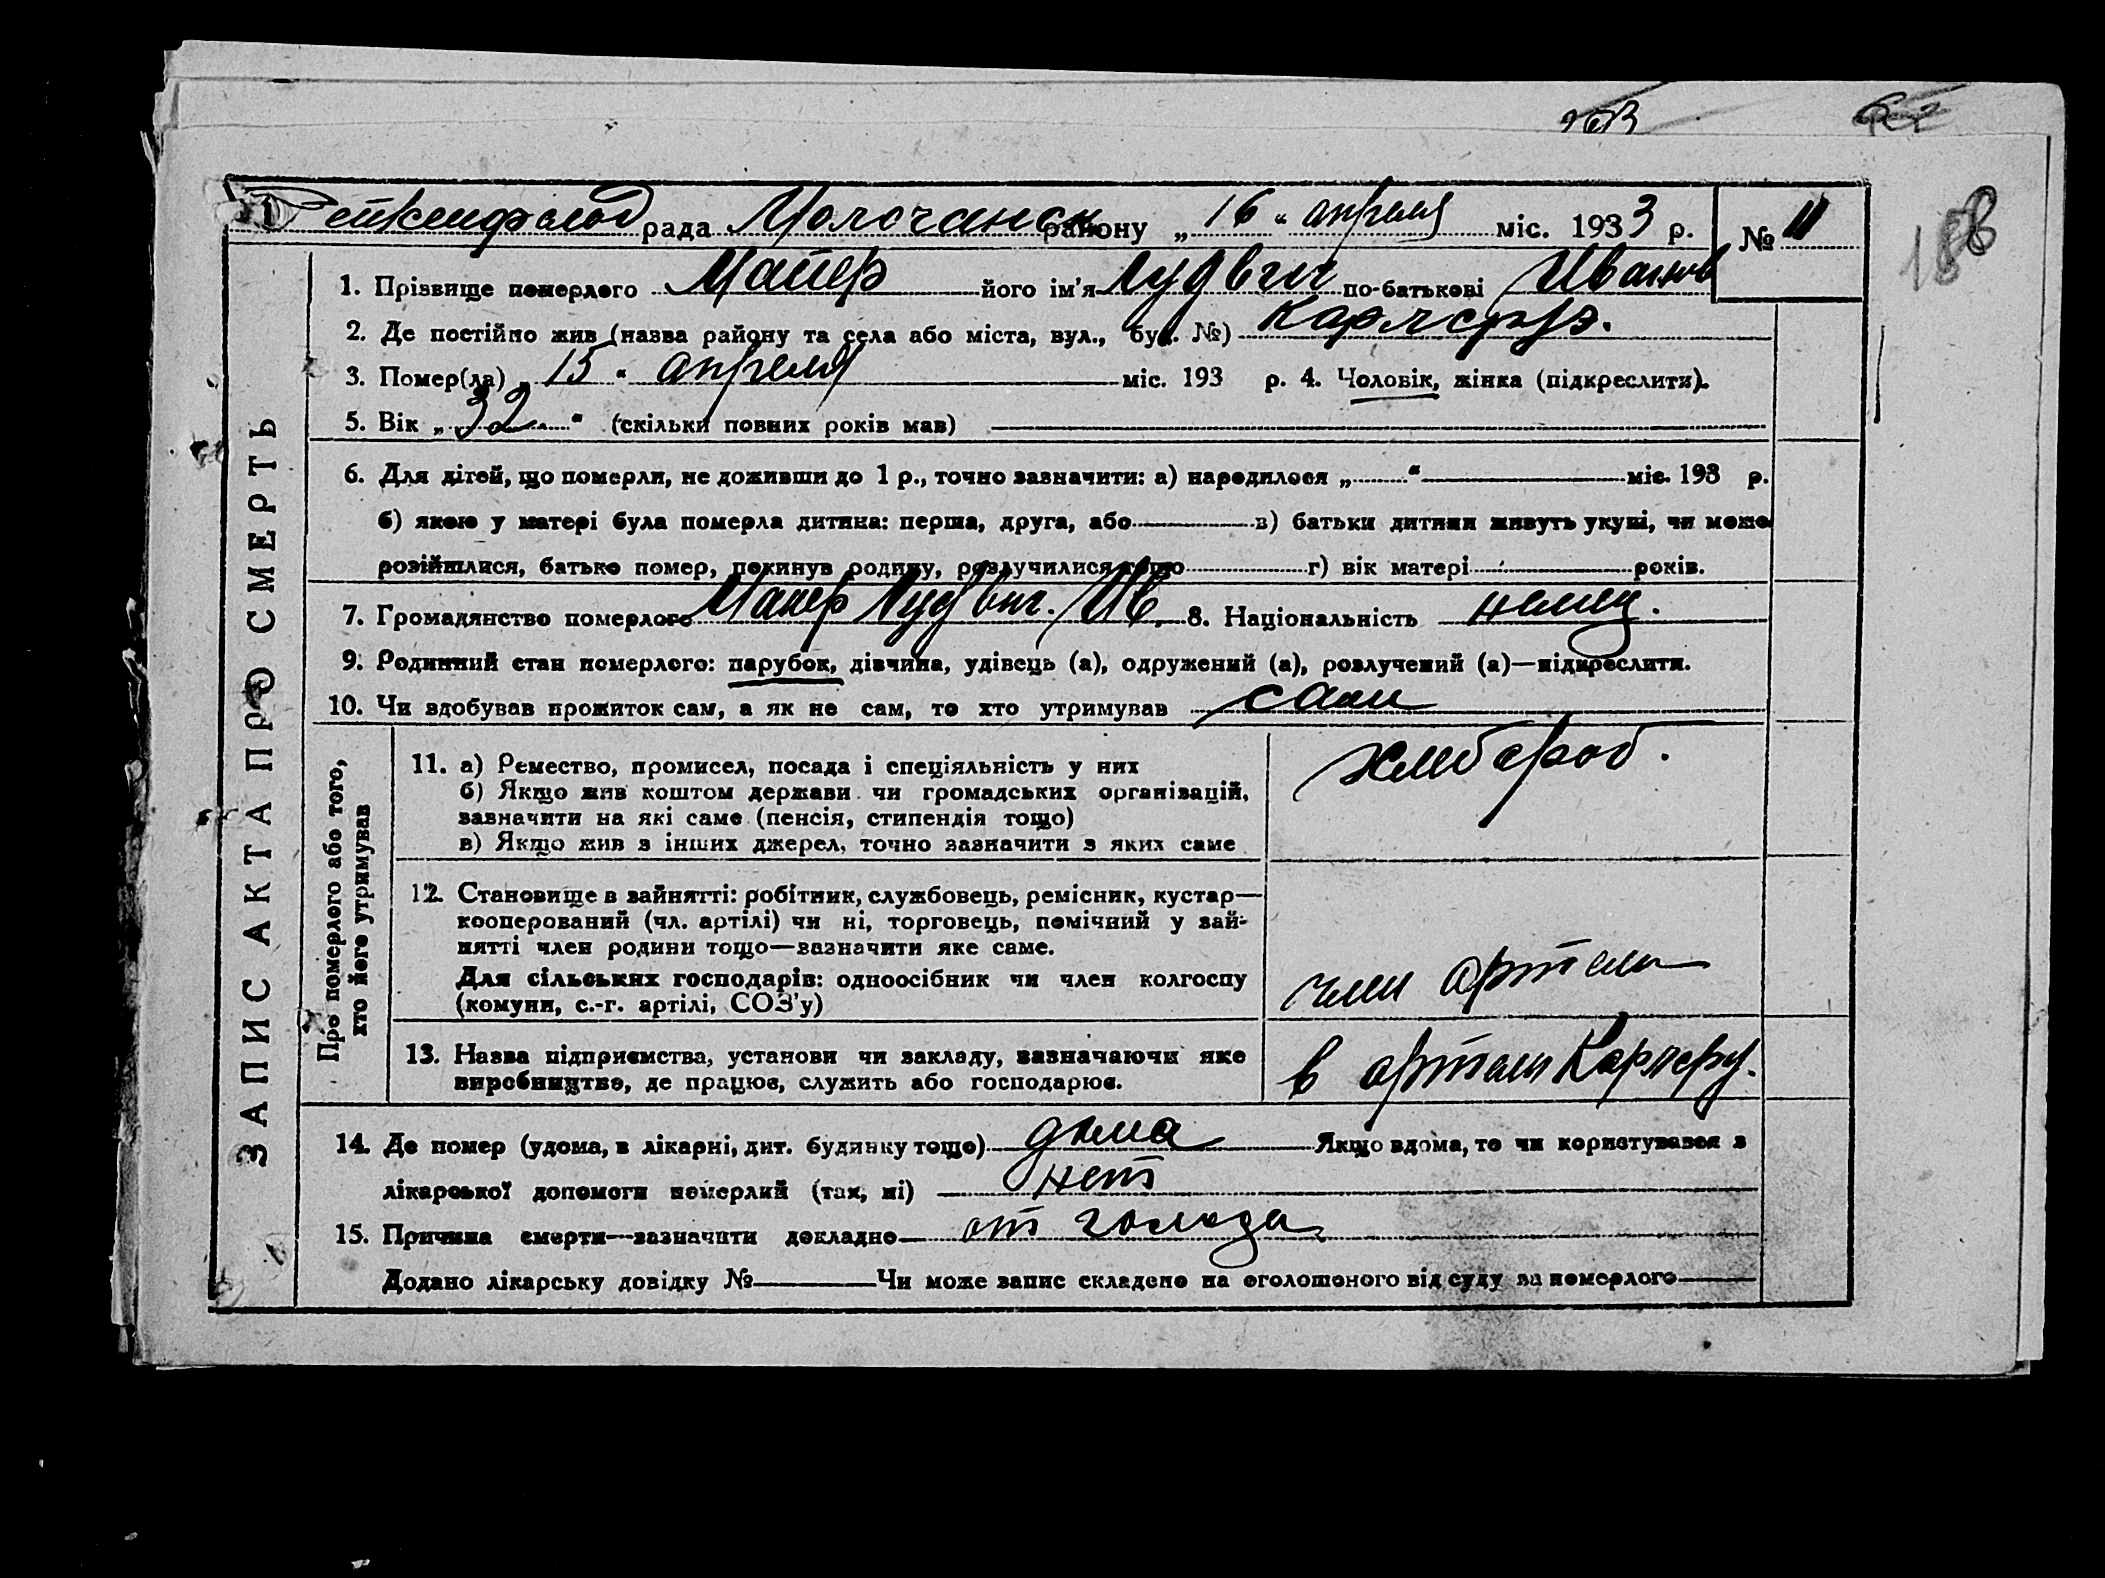 263
188
Рейкенфельд рада Молочанск району „ 16 “ апреля міс. 1933 р. № 11
ЗАПИС АКТА ПРО СМЕРТЬ
1. Прізвище померлого Майер його ім'я Лудвиг по-батькові Иванов
2. Де постійно жив (назва району та села або міста, вул., буд. №) Карлсруэ.
3. Помер(ла) „ 15 “ апреля міс. 193 р. 4. Чоловік, жінка (підкреслити).
5. Вік „ 32 “ (скільки повних років мав)
6. Для дітей, що померли, не доживши до 1 р., точно зазначити: а) народилося „ “ міс. 193 р.
б) якою у матері була померла дитина: перша, друга, або в) батьки дитини живуть укупі, чи може
розійшлися, батько помер, покинув родину, розлучилися тощо г) вік матері років.
7. Громадянство померлого Майер Лудвиг. Ив. 8. Національність немец.
9. Родинний стан померлого: парубок, дівчина, удівець (а), одружений (а), розлучений (а)—підкреслити.
10. Чи здобував прожиток сам, а як не сам, то хто утримував сам
Про померлого або того,
хто його утримував
11. а) Ремество, промисел, посада і спеціяльність у них хлебороб.
б) Якщо жив коштом держави чи громадських організацій,
зазначити на які саме (пенсія, стипендія тощо)
в) Якщо жив з інших джерел, точно зазначити з яких саме
12. Становище в зайнятті: робітник, службовець, ремісник, кустар—
кооперований (чл. артілі) чи ні, торговець, помічний у зай-
нятті член родини тощо—зазначити яке саме.
Для сільських господарів: одноосібник чи член колгоспу член артели
(комуни, с.-г. артілі, СОЗ'у)
13. Назва підприємства, установи чи закладу, зазначаючи яке в артели Карлсру.
виробництво, де працює, служить або господарює.
14. Де помер (удома, в лікарні, дит. будинку тощо) дома Якщо вдома, то чи користувався з
лікарської допомоги померлий (так, ні) нет
15. Причина смерти—зазначити докладно от голода
Додано лікарську довідку № Чи може запис складено на оголошеного від суду за померлого